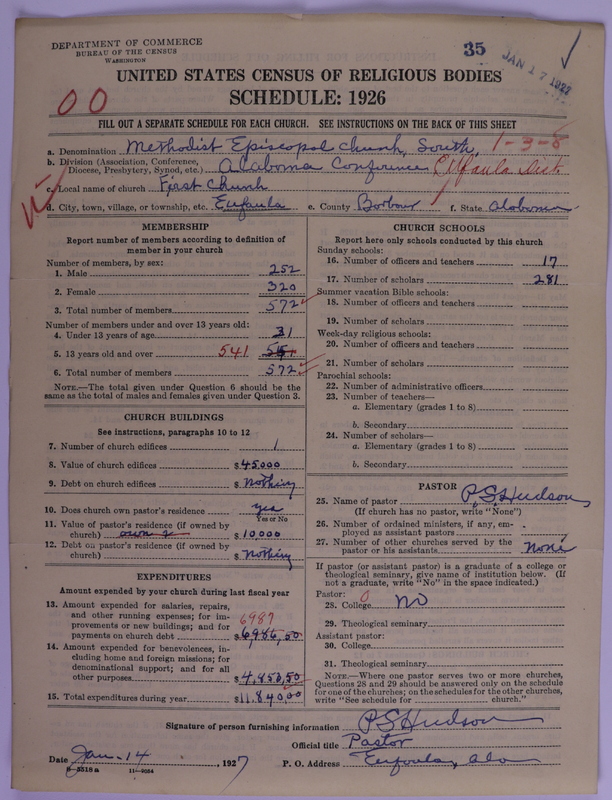 DEPARTMENT OF COMMERCE
BUREAU OF THE CENSUS
WASHINGTON
35
JAN 17 1927
UNITED STATES CENSUS OF RELIGIOUS BODIES
SCHEDULE: 1926
00
FILL OUT A SEPARATE SCHEDULE FOR EACH CHURCH. SEE INSTRUCTIONS ON THE BACK OF THIS SHEET
a. Denomination Methodist Episcopal Church, South, 1-3-8
b. Division (Association, Conference, Diocese, Presbytery, Synod, etc.) Alabama Conference Eufaula Dist
c. Local name of church First Church
d. City, town, village, or township, etc. Eufaula e. County Barbour f. State Alabama
MEMBERSHIP
Report number of members according to definition of
member in your church
Number of members, by sex:
1. Male 252
2. Female 320
3. Total number of members 572
Number of members under and over 13 years old:
4. Under 13 years of age 31
5. 13 years old and over 541
6. Total number of members 572
NOTE.—The total given under Question 6 should be the
same as the total of males and females given under Question 3.
CHURCH BUILDINGS
See instructions, paragraphs 10 to 12
7. Number of church edifices 1
8. Value of church edifices $45,000
9. Debt on church edifices $ Nothing
10. Does church own pastor's residence yes
Yes or No
11. Value of pastor's residence (if owned by
church) $10,000
12. Debt on pastor's residence (if owned by
church) $ Nothing
EXPENDITURES
Amount expended by your church during last fiscal year
13. Amount expended for salaries, repairs,
and other running expenses; for im-
provements or new buildings; and for
payments on church debt 6987 $6,986,00
14. Amount expended for benevolences, in-
cluding home and foreign missions; for
denominational support; and for all
other purposes $4,853,50
15. Total expenditures during year $11,840,00
CHURCH SCHOOLS
Report here only schools conducted by this church
Sunday schools:
16. Number of officers and teachers 17
17. Number of scholars 281
Summer vacation Bible schools:
18. Number of officers and teachers
19. Number of scholars
Week-day religious schools:
20. Number of officers and teachers
21. Number of scholars
Parochial schools:
22. Number of administrative officers
23. Number of teachers—
a. Elementary (grades 1 to 8)
b. Secondary
24. Number of scholars—
a. Elementary (grades 1 to 8)
b. Secondary
PASTOR
25. Name of pastor P.S. Hudson
(If church has no pastor, write "None")
26. Number of ordained ministers, if any, em-
ployed as assistant pastors
27. Number of other churches served by the
pastor or his assistants None
If pastor (or assistant pastor) is a graduate of a college or
theological seminary, give name of institution below. (If
not a graduate, write "No" in the space indicated.)
Pastor:
28. College 0 No
29. Theological seminary
Assistant pastor:
30. College
31. Theological seminary
NOTE.—Where one pastor serves two or more churches,
Questions 28 and 29 should be answered only on the schedule
for one of the churches; on the schedules for the other churches,
write "See schedule for church."
Signature of person furnishing information P S Hudson
Official title Pastor
Date Jan. 14, 1927 P. O. Address Eufaula, Ala
8-5518a 11-9054